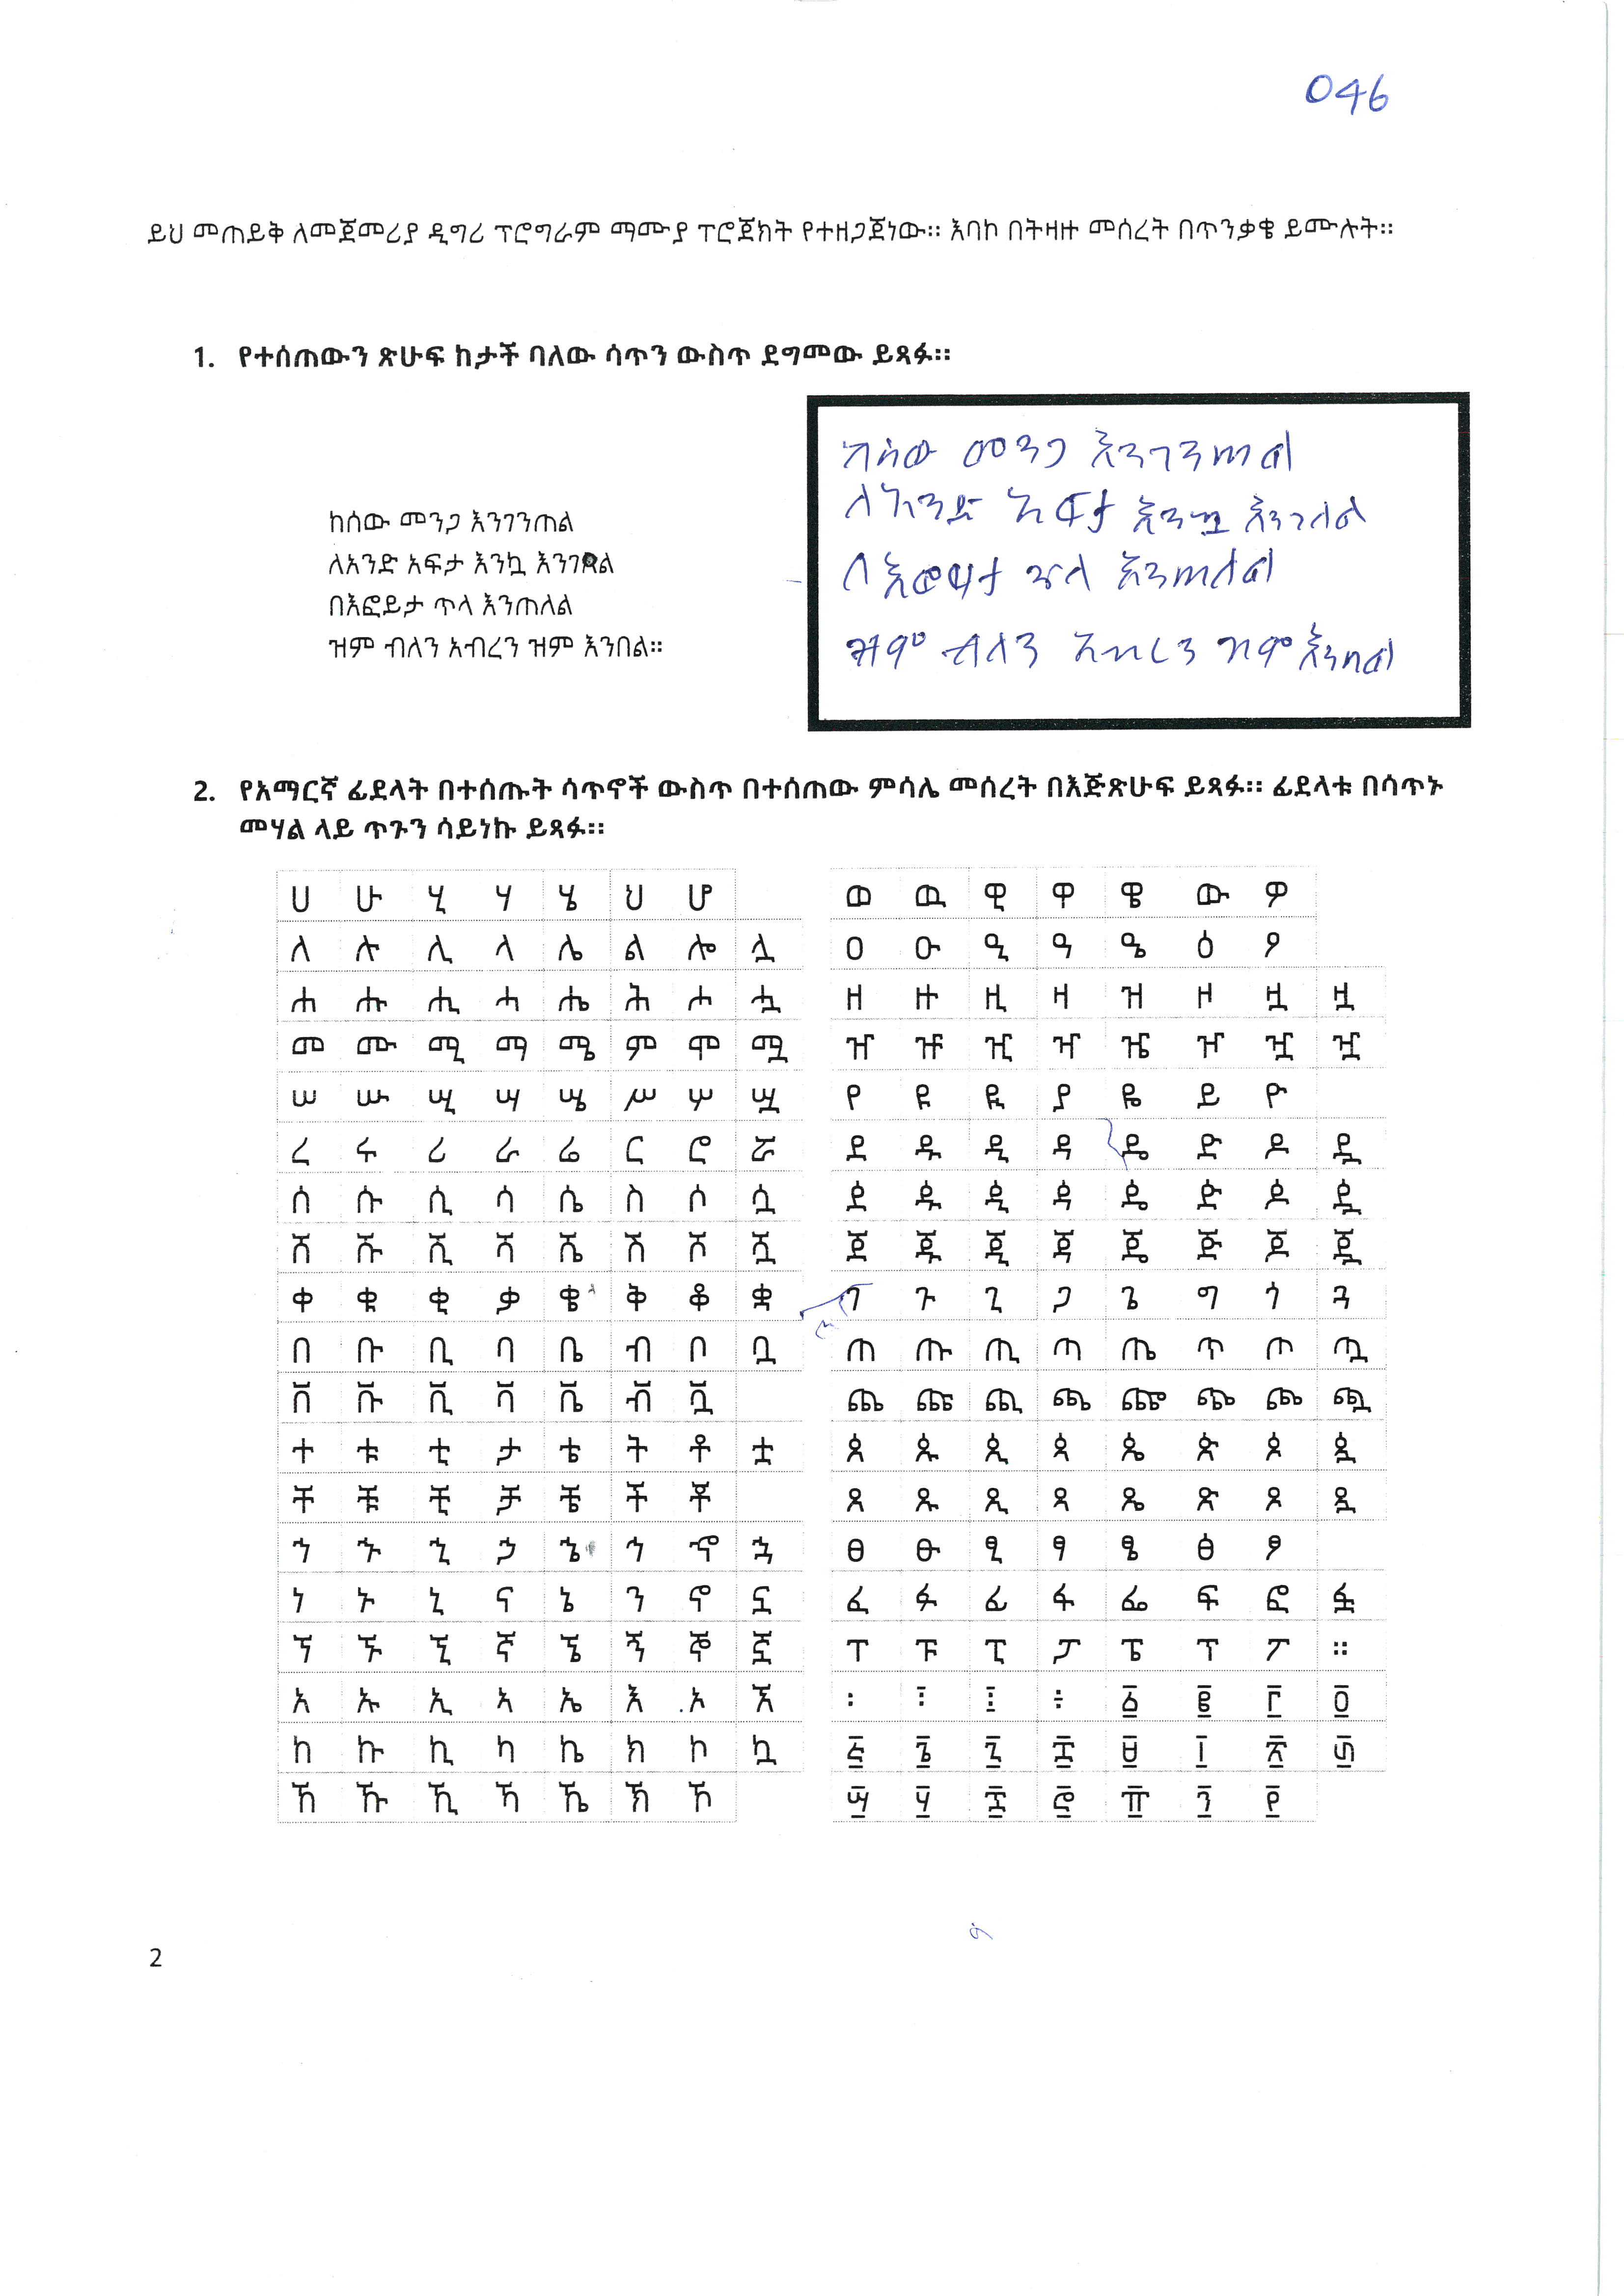 046
ይህ መጠይቅ ለመጀመሪያ ዲግሪ ፕሮግራም ማሙያ ፕሮጀክት የተዘጋጀነው። እባኮ በትዛዙ መሰረት በጥንቃቄ ይሙሉት።
1. የተሰጠውን ጽሁፍ ከታች ባለው ሳጥን ውስጥ ደግመው ይጻፉ።
ከሰው መንጋ እንገንጠል
ለአንድ አፍታ እንኳ እንገለል
በእፎይታ ጥላ እንጠለል
ዝም ብለን አብረን ዝም እንበል።
ከሰው መንጋ እንገንጠል
ለአንድ አፍታ እንኳ እንገለል
በእፎይታ ጥላ እንጠለል
ዝም ብለን አብረን ዝም እንበል
2. የአማርኛ ፊደላት በተሰጡት ሳጥኖች ውስጥ በተሰጠው ምሳሌ መሰረት በእጅጽሁፍ ይጻፉ። ፊደላቱ በሳጥኑ
መሃል ላይ ጥጉን ሳይነኩ ይጻፉ።
ሀ ሁ ሂ ሃ ሄ ህ ሆ
ለ ሉ ሊ ላ ሌ ል ሎ ሏ
ሐ ሑ ሒ ሓ ሔ ሕ ሖ ሗ
መ ሙ ሚ ማ ሜ ም ሞ ሟ
ሠ ሡ ሢ ሣ ሤ ሥ ሦ ሧ
ረ ሩ ሪ ራ ሬ ር ሮ ሯ
ሰ ሱ ሲ ሳ ሴ ስ ሶ ሷ
ሸ ሹ ሺ ሻ ሼ ሽ ሾ ሿ
ቀ ቁ ቂ ቃ ቄ ቅ ቆ ቋ
በ ቡ ቢ ባ ቤ ብ ቦ ቧ
ቨ ቩ ቪ ቫ ቬ ቭ ቯ
ተ ቱ ቲ ታ ቴ ት ቶ ቷ
ቸ ቹ ቺ ቻ ቼ ች ቾ
ኀ ኁ ኂ ኃ ኄ ኅ ኆ ኋ
ነ ኑ ኒ ና ኔ ን ኖ ኗ
ኘ ኙ ኚ ኛ ኜ ኝ ኞ ኟ
አ ኡ ኢ ኣ ኤ እ ኦ ኧ
ከ ኩ ኪ ካ ኬ ክ ኮ ኳ
ኸ ኹ ኺ ኻ ኼ ኽ ኾ
ወ ዉ ዊ ዋ ዌ ው ዎ
ዐ ዑ ዒ ዓ ዔ ዕ ዖ
ዘ ዙ ዚ ዛ ዝ ዞ ዟ ዟ
ዠ ዡ ዢ ዣ ዤ ዦ ዧ ዧ
የ ዩ ዪ ያ ዬ ይ ዮ
ደ ዱ ዲ ዳ ዴ ድ ዶ ዷ
ዸ ዹ ዺ ዻ ዼ ዽ ዾ ዿ
ጀ ጁ ጂ ጃ ጄ ጅ ጆ ጇ
ገ ጉ ጊ ጋ ጌ ግ ጎ ጓ
ጠ ጡ ጢ ጣ ጤ ጥ ጦ ጧ
ጨ ጩ ጪ ጫ ጬ ጭ ጮ ጯ
ጰ ጱ ጲ ጳ ጴ ጵ ጶ ጷ
ጸ ጹ ጺ ጻ ጼ ጽ ጾ ጿ
ፀ ፁ ፂ ፃ ፄ ፅ ፆ
ፈ ፉ ፊ ፋ ፌ ፍ ፎ ፏ
ፐ ፑ ፒ ፓ ፔ ፕ ፖ ።
፡ ፣ ፤ ÷ ፩ ፪ ፫ ፬
፭ ፮ ፯ ፰ ፱ ፲ ፳ ፴
፵ ፶ ፷ ፸ ፹ ፺ ፻
2